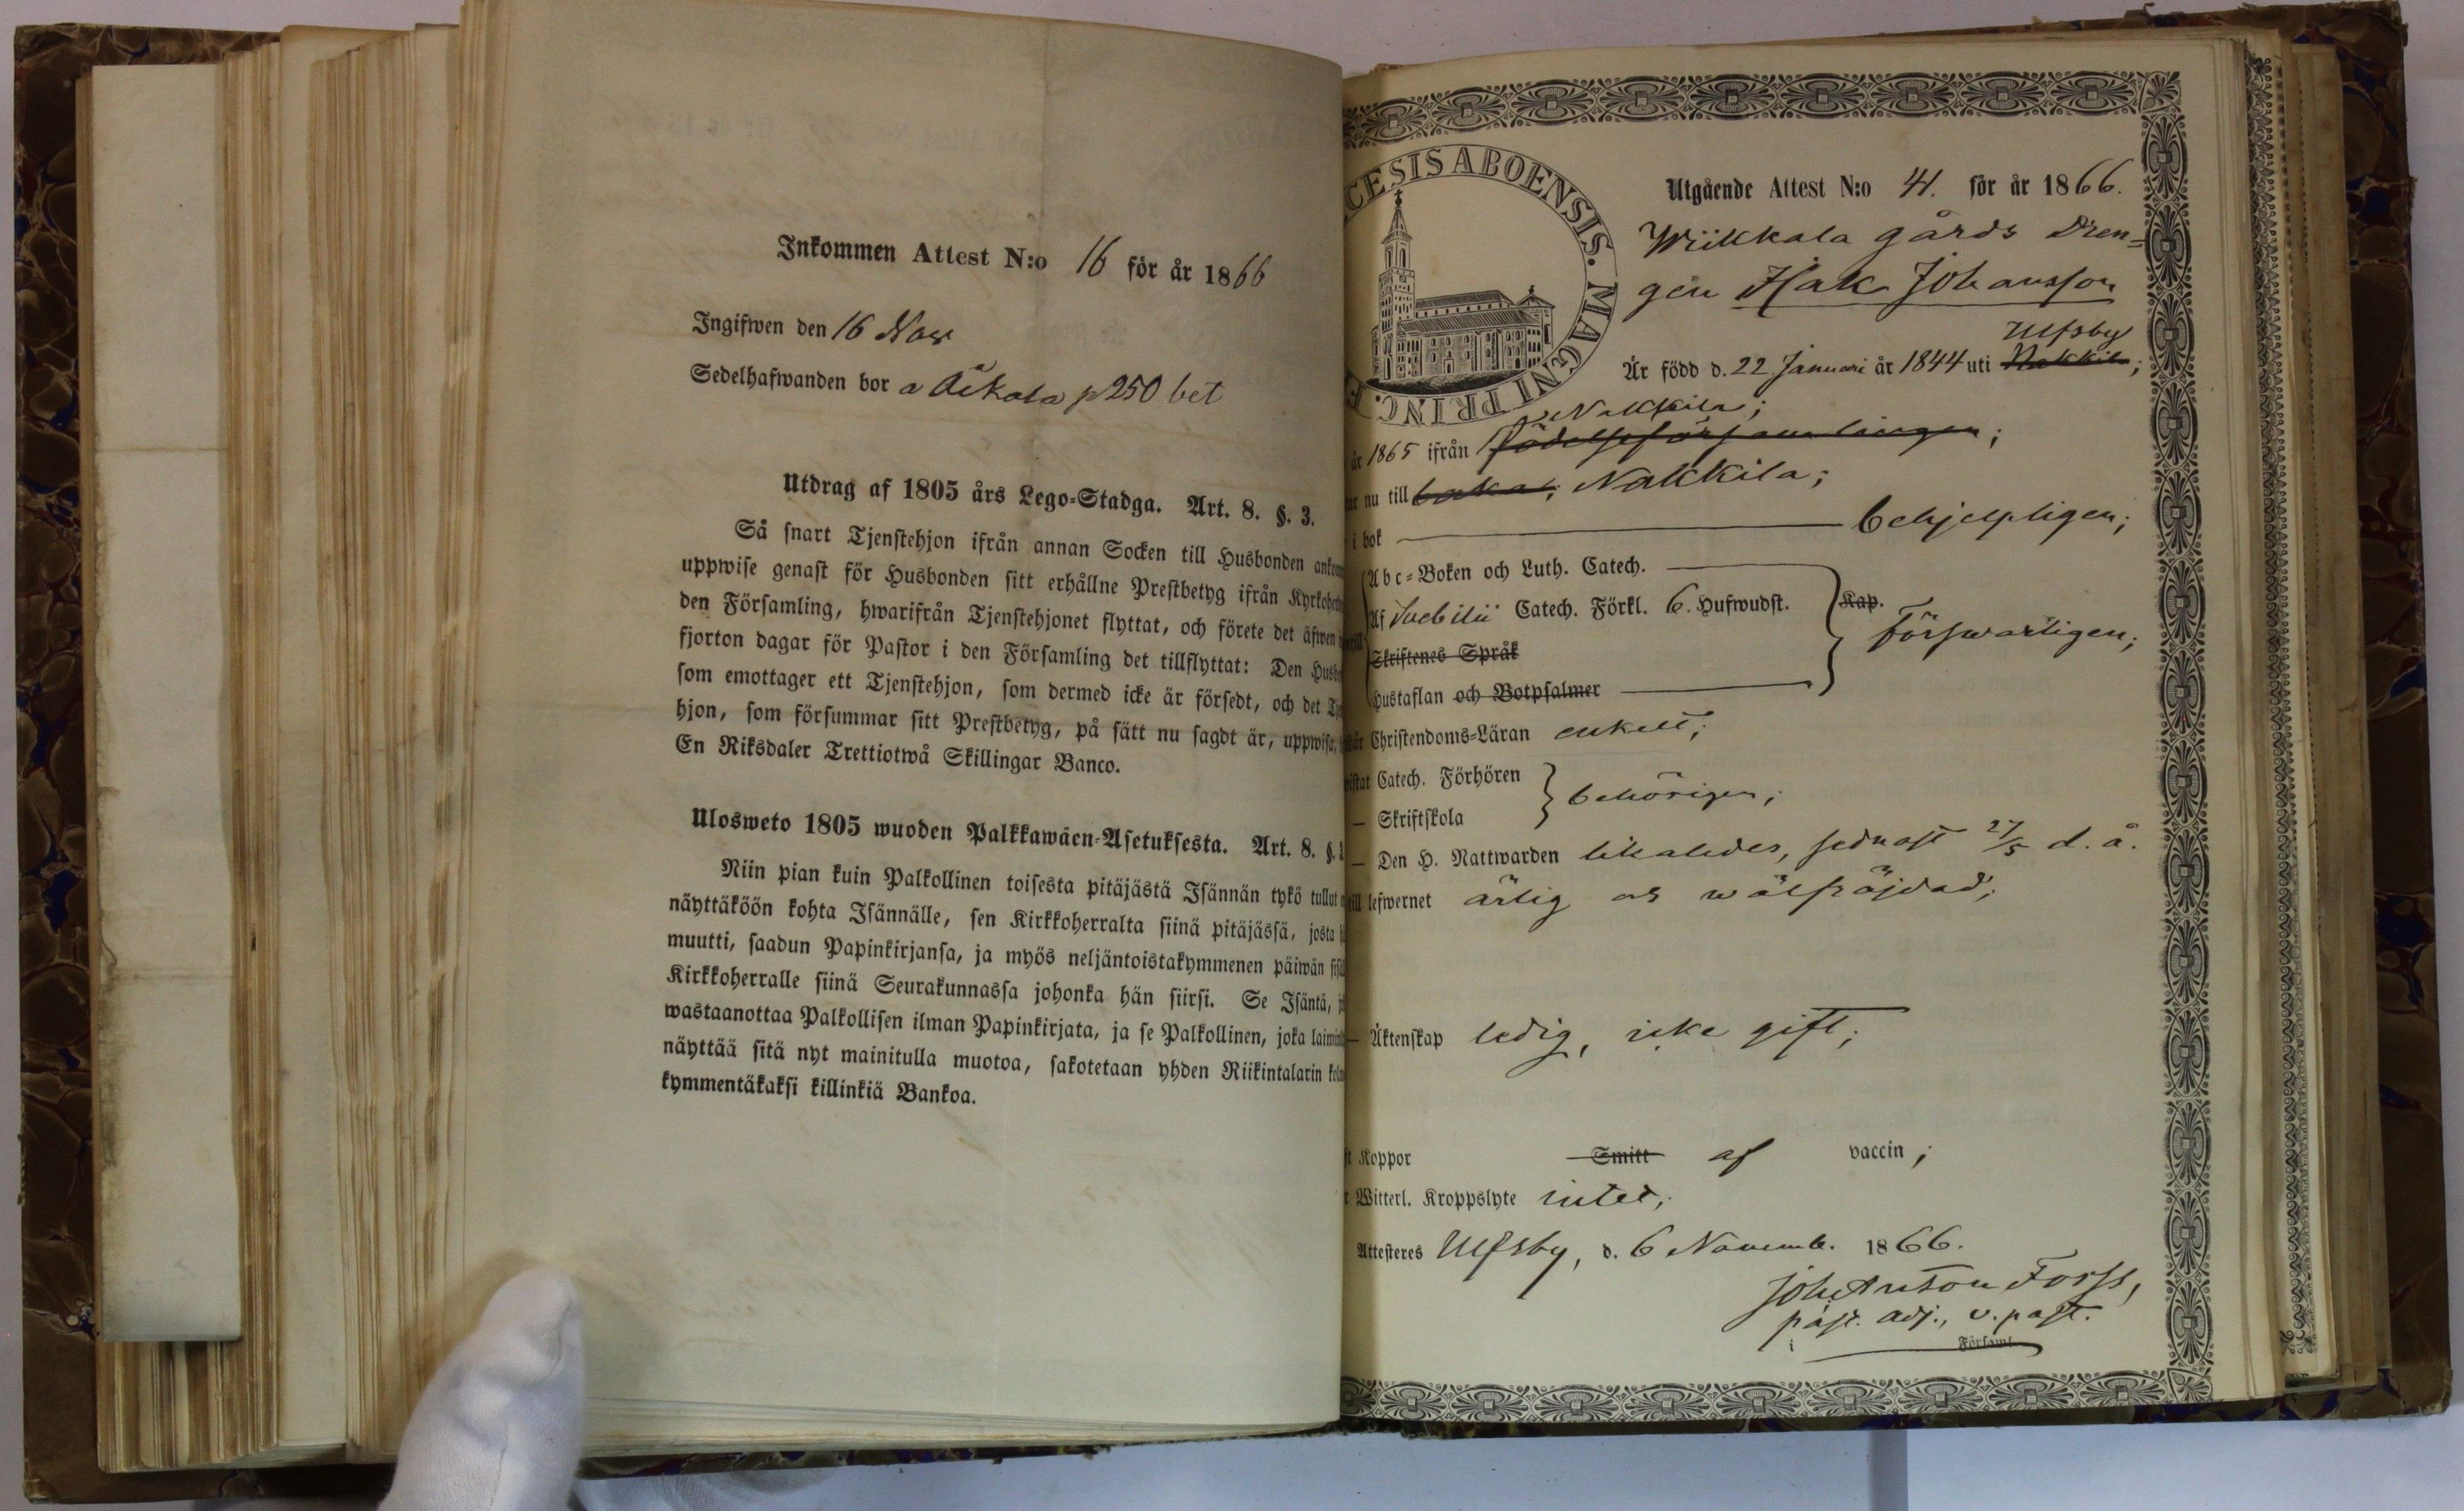 Inkommen Attest N:o 16 för år 1866
Ingifwen den 16 Nov
Sedelhafwanden bor a p 250 bet
Utdrag af 1805 års Lego-Stadga. Art. 8. §. 3.
Så snart Tjenstehjon ifrån annan Socken till Husbonden
uppwise genast för Husbonden sitt erhållne Prestbetyg ifrån
den Församling, hwarifrån Tjenstehjonet flyttat, och förete det äfwen
fjorton dagar för Pastor i den Församling det tillflyttat: Den
som emottager ett Tjenstehjon, som dermed icke är försedt, och det
hjon, som försummar sitt Prestbetyg, på sätt nu sagdt är, uppwisa,
En Riksdaler Trettiotwå Skillingar Banco.
Ulosweto 1805 wuoden Palkkawäen-Asetuksesta. Art. 8. §.
Niin pian kuin Palkollinen toisesta pitäjästä Isännän tykö tullut
näyttäköön kohta Isännälle, sen Kirkkoherralta siinä pitäjässä, josta
muutti, saadun Papinkirjansa, ja myös neljäntoistakymmenen päiwän
Kirkkoherralle siinä Seurakunnassa johonka hän siirsi. Se Isäntä,
wastaanottaa Palkollisen ilman Papinkirjata, ja se Palkollinen, joka
näyttää sitä nyt mainitulla muotoa, sakotetaan yhden Riikintalarin
kymmentäkaksi killinkiä Bankoa.
CESIS ABOENSIS. MAGNI PRINC. F
Utgående Attest N:o 41. för år 1866.
Wiikkala gårds Dren-
gen Isak Johansson
Ulfsby
Är född d. 22. Januari år 1844 uti Nakkila;
Nakkila;
år 1865 ifrån födelseförsamlingen;
nu till Nakkila;
i bok behjelpligen;
Abc-Boken och Luth. Catech.
Af Svebilii Catech. Förkl. 6. Hufwudst. Kap.
försvarligen;
Skriftenes Språk
Hustaflan och Botpsalmer
Christendoms-Läran enkelt;
Catech. Förhören
behörigen;
— Skriftskola
— Den H. Nattwarden likaledes, sednast 27/5 d. å.
till lefwernet ärlig och wälfräjdad;
— Äktenskap ledig, icke gift;
Koppor Smitt af vaccin;
Witterl. Kroppslyte intet;
Attesteres Ulfsby, d. 6 Novemb. 1866.
Joh. Anton Forss,
past. adj., v. past.
i Församl.